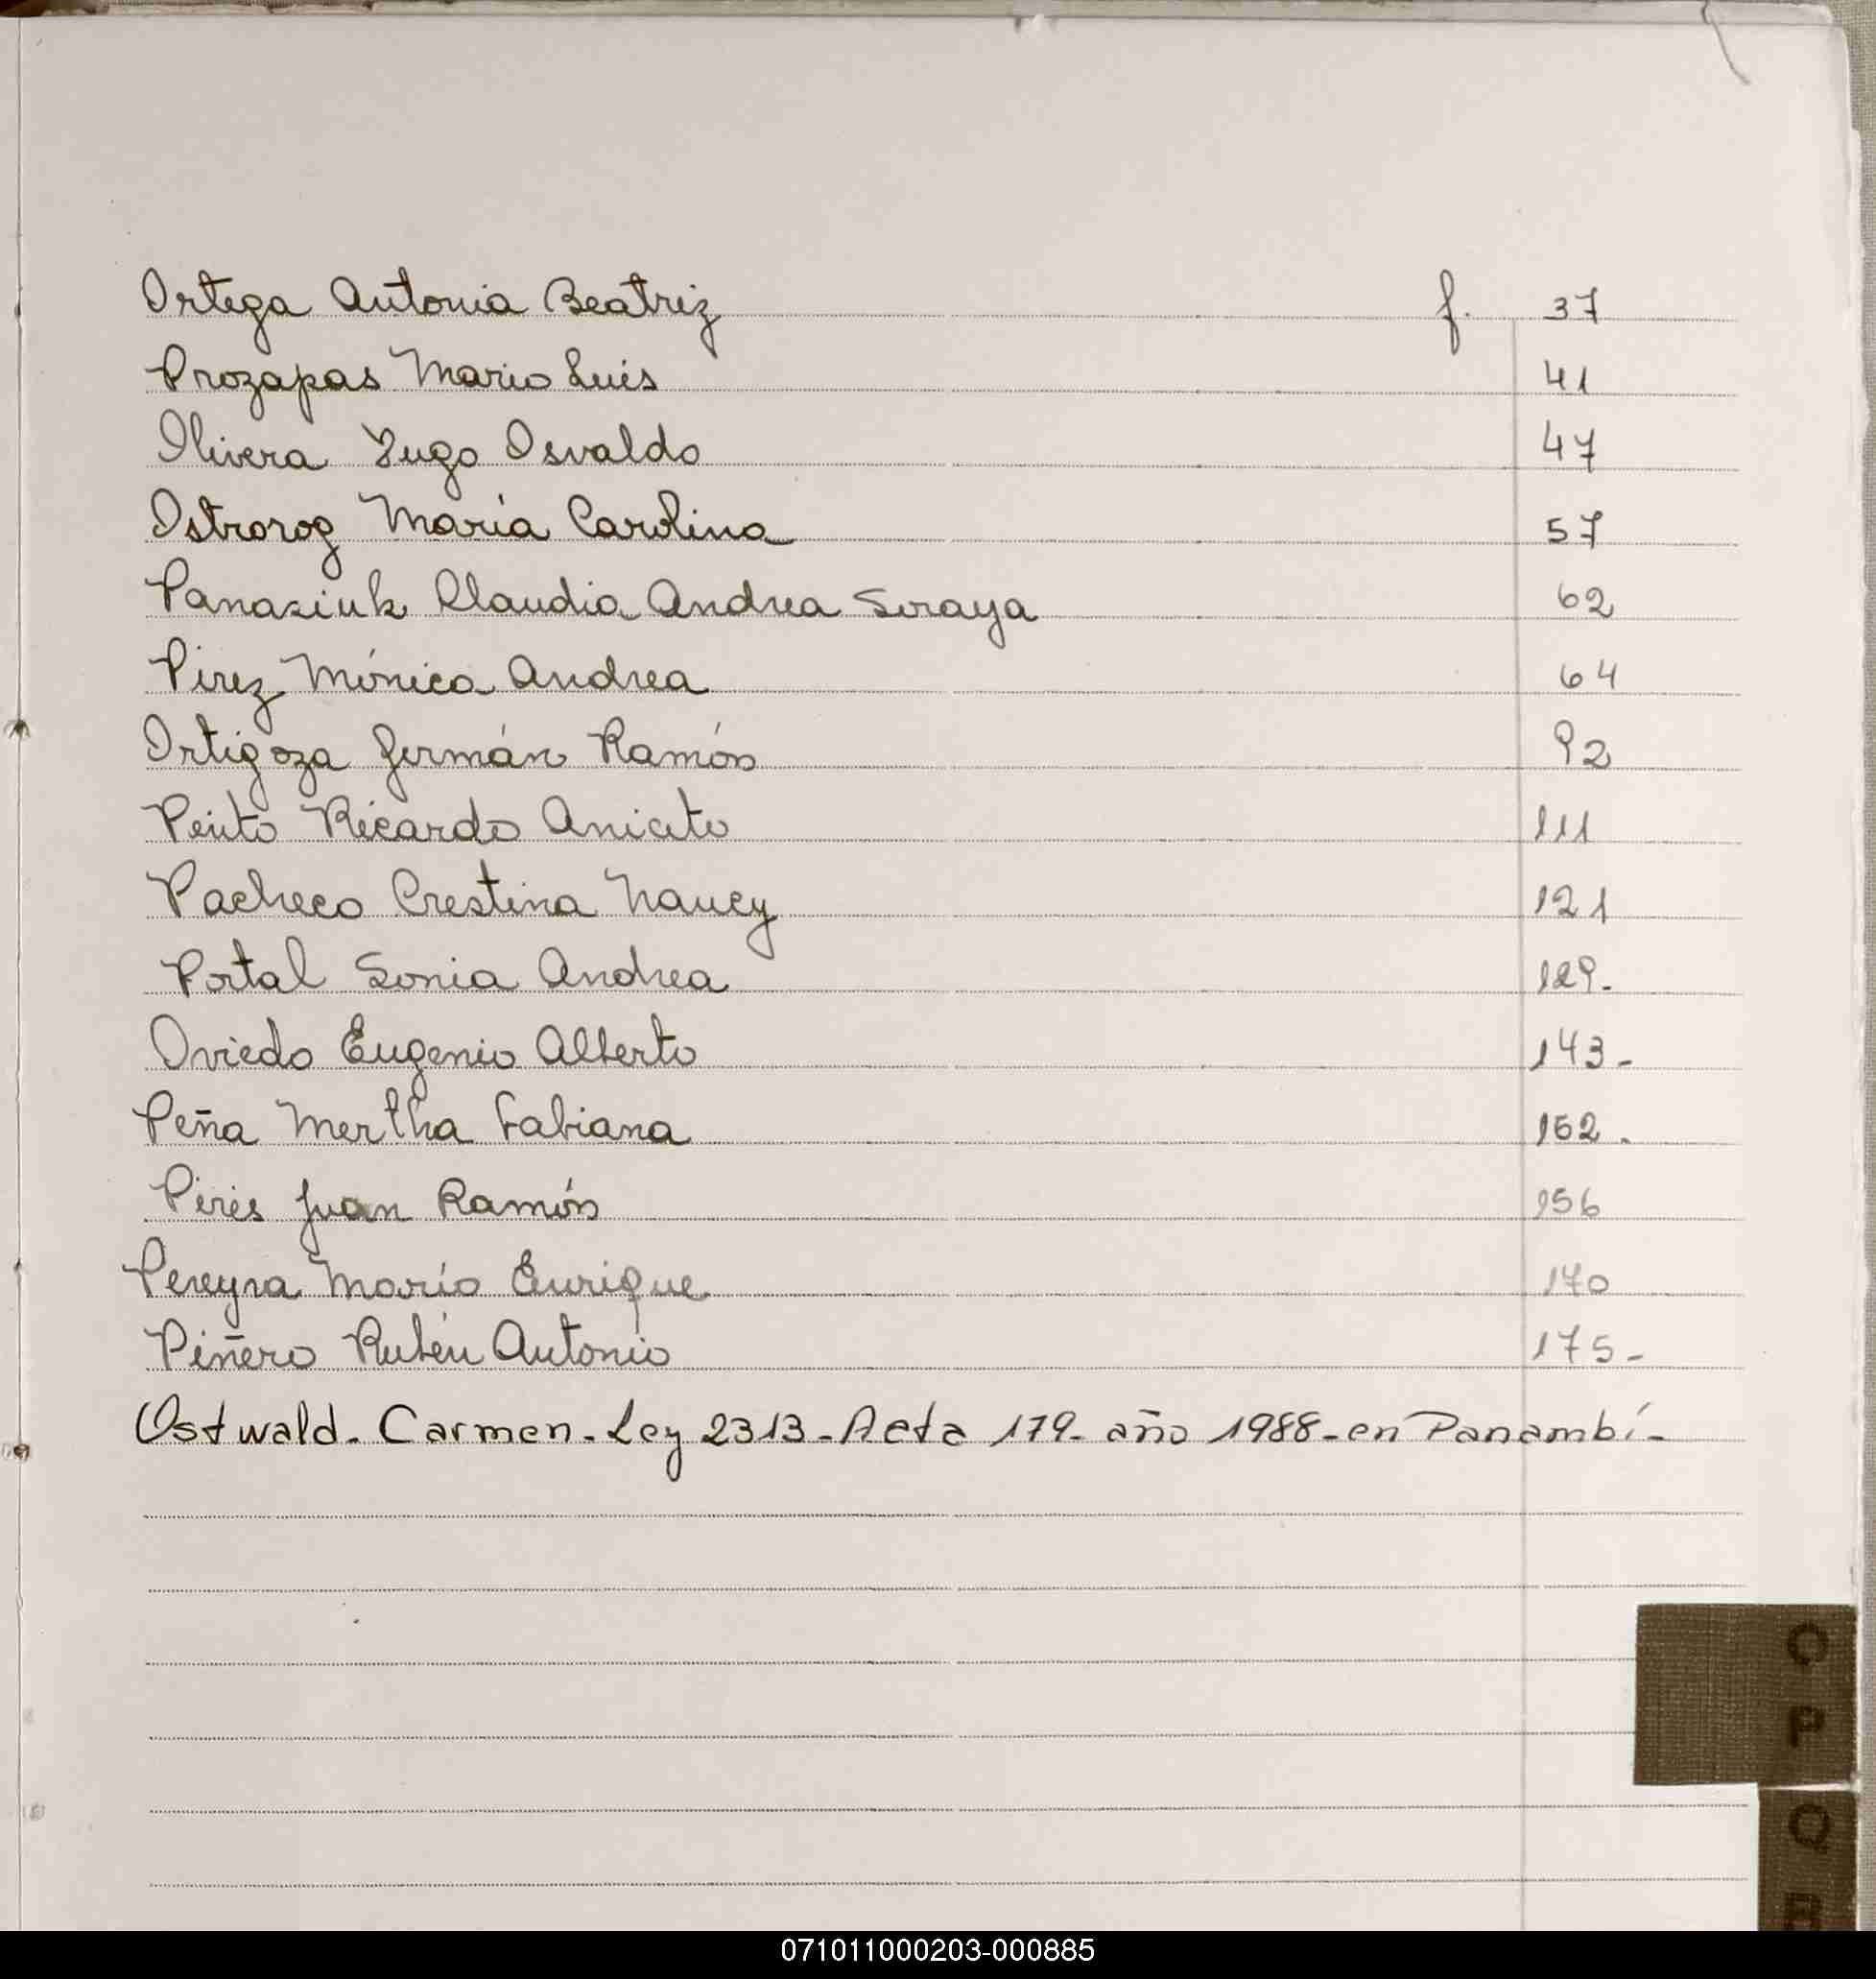 Ortega Antonia Beatriz f. 37
Prozapas Mario Luis 41
Olivera Hugo Osvaldo 47
Ostrorog María Carolina 57
Panasiuk Claudia Andrea Soraya 62
Pirez Mónica Andrea 64
Ortigoza Germán Ramón 92
Pinto Ricardo Aniceto 111
Pacheco Cristina Nancy 121
Portal Sonia Andrea 129.
Oviedo Eugenio Alberto 143-
Peña Mertha Fabiana 152.
Pires Juan Ramón 156
Pereyra Mario Enrique 170
Piñero Rubén Antonio 175-
Ostwald. Carmen. Ley 2313. Acta 179. año 1988-en Panambí-
O
P
Q
R
071011000203-000885